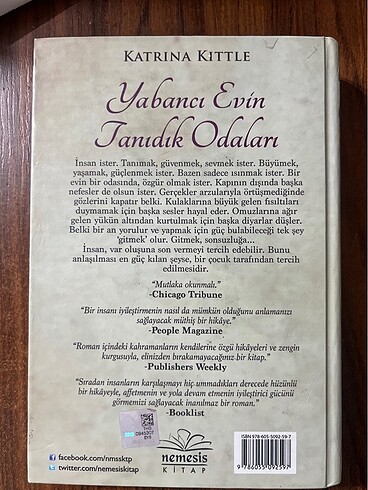 KATRINA KITTLE
Yabancı Evin
Tanıdık Odaları
İnsan ister. Tanımak, güvenmek, sevmek ister. Büyümek,
yaşamak, güçlenmek ister. Bazen sadece ısınmak ister. Bir
evin bir odasında, özgür olmak ister. Kapının dışında başka
nefesler de olsun ister. Gerçekler arzularıyla örtüşmediğinde
gözlerini kapatır belki. Kulaklarına büyük gelen fısıltıları
duymamak için başka sesler hayal eder. Omuzlarına ağır
gelen yükün altından kurtulmak için başka diyarlar düşler.
Belki bir an yorulur ve yapmak için güç bulabileceği tek şey
'gitmek' olur. Gitmek, sonsuzluğa...
İnsan, var oluşuna son vermeyi tercih edebilir. Bunu
anlaşılması en güç kılan şeyse, bir çocuk tarafından tercih
edilmesidir.
"Mutlaka okunmalı."
-Chicago Tribune
"Bir insanı iyileştirmenin nasıl da mümkün olduğunu anlamanızı
sağlayacak müthiş bir hikâye."
-People Magazine
"Roman içindeki kahramanların kendilerine özgü hikâyeleri ve zengin
kurgusuyla, elinizden bırakamayacağınız bir kitap."
-Publishers Weekly
"Sıradan insanların karşılaşmayı hiç ummadıkları derecede hüzünlü
bir hikâyeyle, affetmenin ve yola devam etmenin iyileştirici gücünü
görmemizi sağlayacak inanılmaz bir roman."
-Booklist
facebook.com/nmssktp
twitter.com/nemesiskitap
nemesis
KİTAP
ISBN 978-605-5092-59-7
9 786055 092597